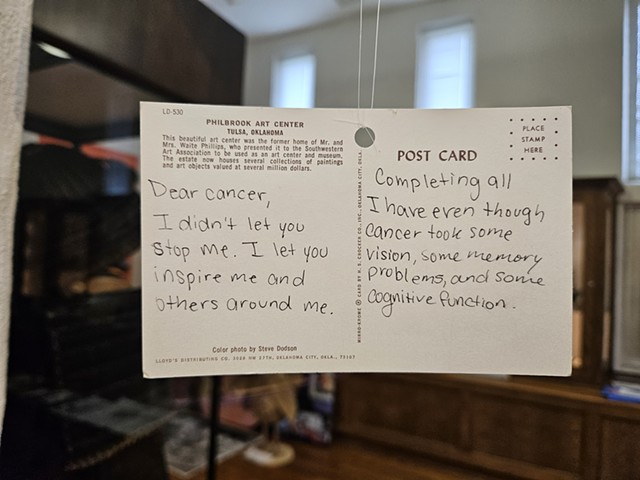 LD-530
PHILBROOK ART CENTER
TULSA, OKLAHOMA
This beautiful art center was the former home of Mr. and
Mrs. Waite Phillips, who presented it to the Southwestern
Art Association to be used as an art center and museum.
The estate now houses several collections of paintings
and art objects valued at several million dollars.
Dear cancer,
I didn't let you
stop me. I let you
inspire me and
others around me.
Color photo by Steve Dodson
LLOYD'S DISTRIBUTING CO. NW 27TH, OKLAHOMA CITY, OKLA., 73107
MIRRO-KROME © CARD BY H. S. CROCKER CO., INC., OKLAHOMA CITY, OKLA.
POST CARD
PLACE
STAMP
HERE
Completing all
I have even though
cancer took some
vision, some memory
problems, and some
cognitive function.